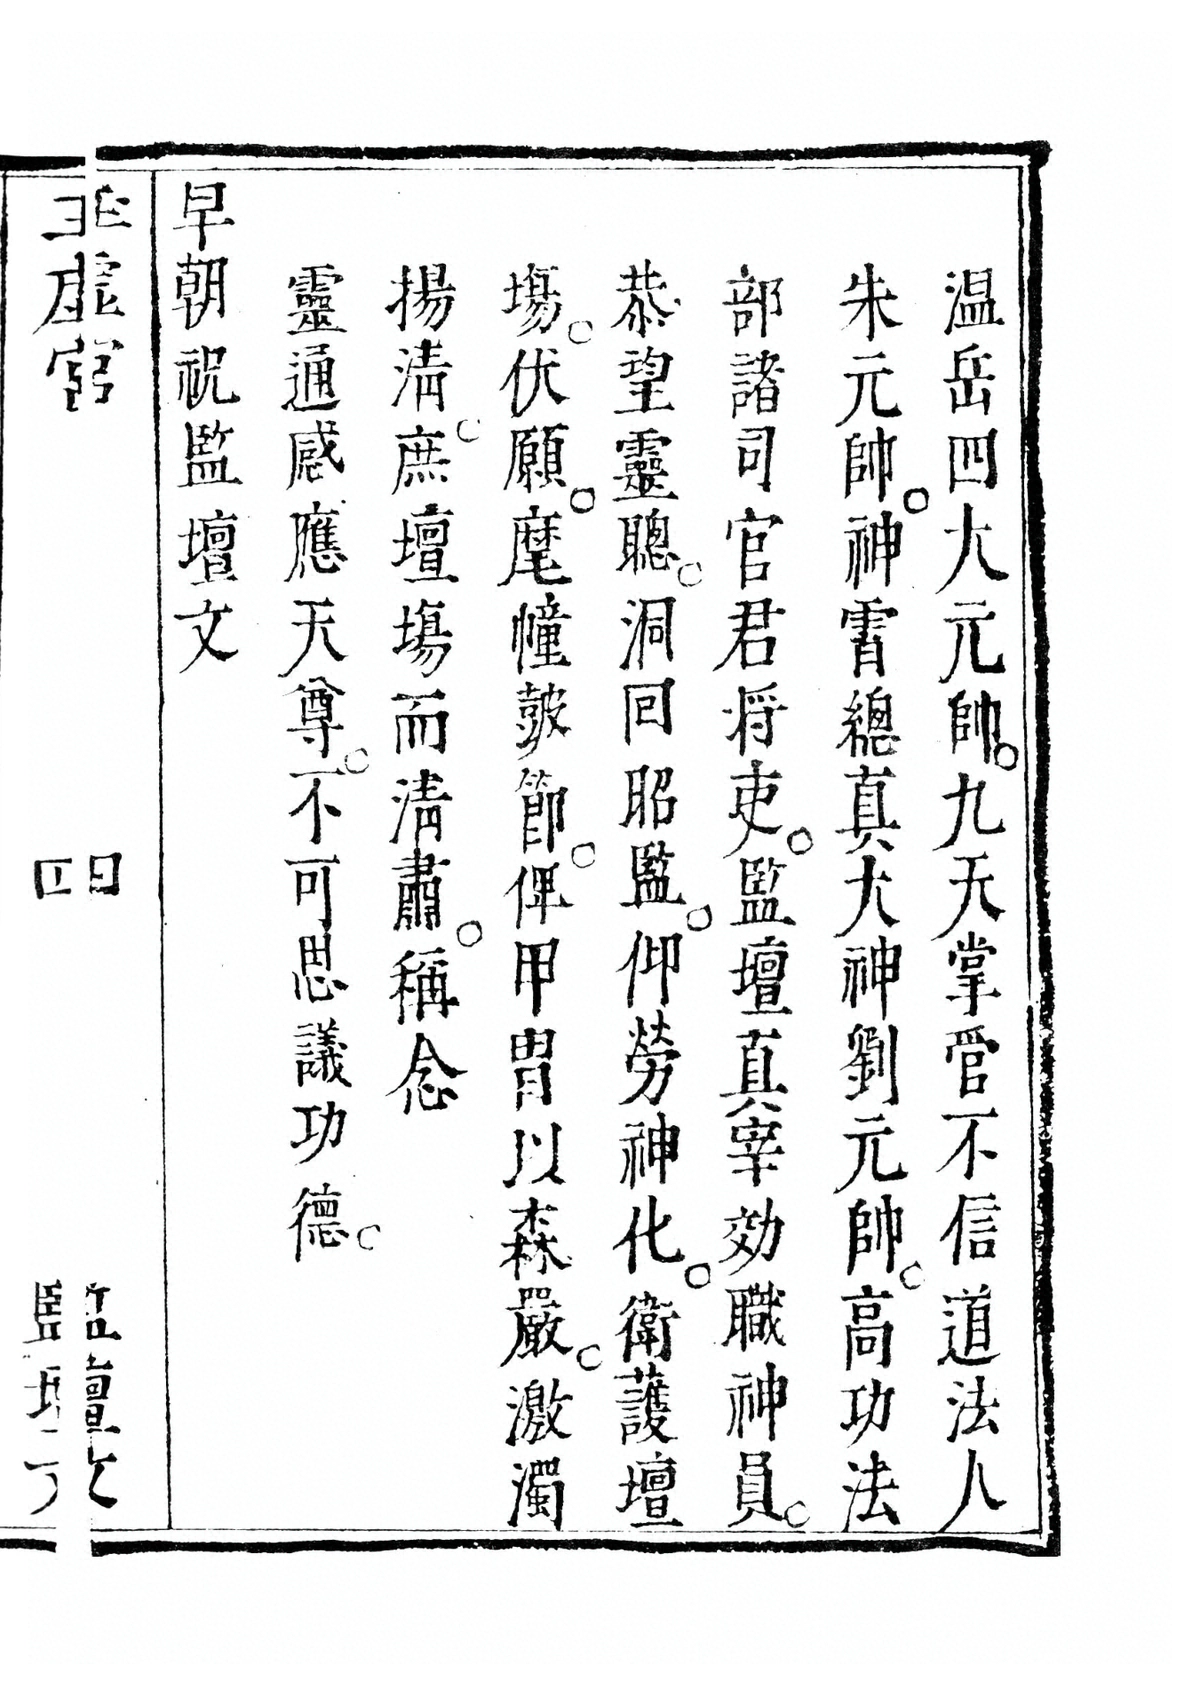 温岳四大元帥。九天掌管不信道法人
朱元帥。神霄總真大神劉元帥。高功法
部諸司官君將吏。監壇真宰効職神員。
恭望靈聰。洞回昭監。仰勞神化。衛護壇
塲。伏願。麾幢皷節。俾甲胄以森嚴。激濁
揚清。庶壇塲而清肅。稱念
靈通感應天尊。不可思議功德。
早朝祝監壇文
玉虛宮
四
監壇文